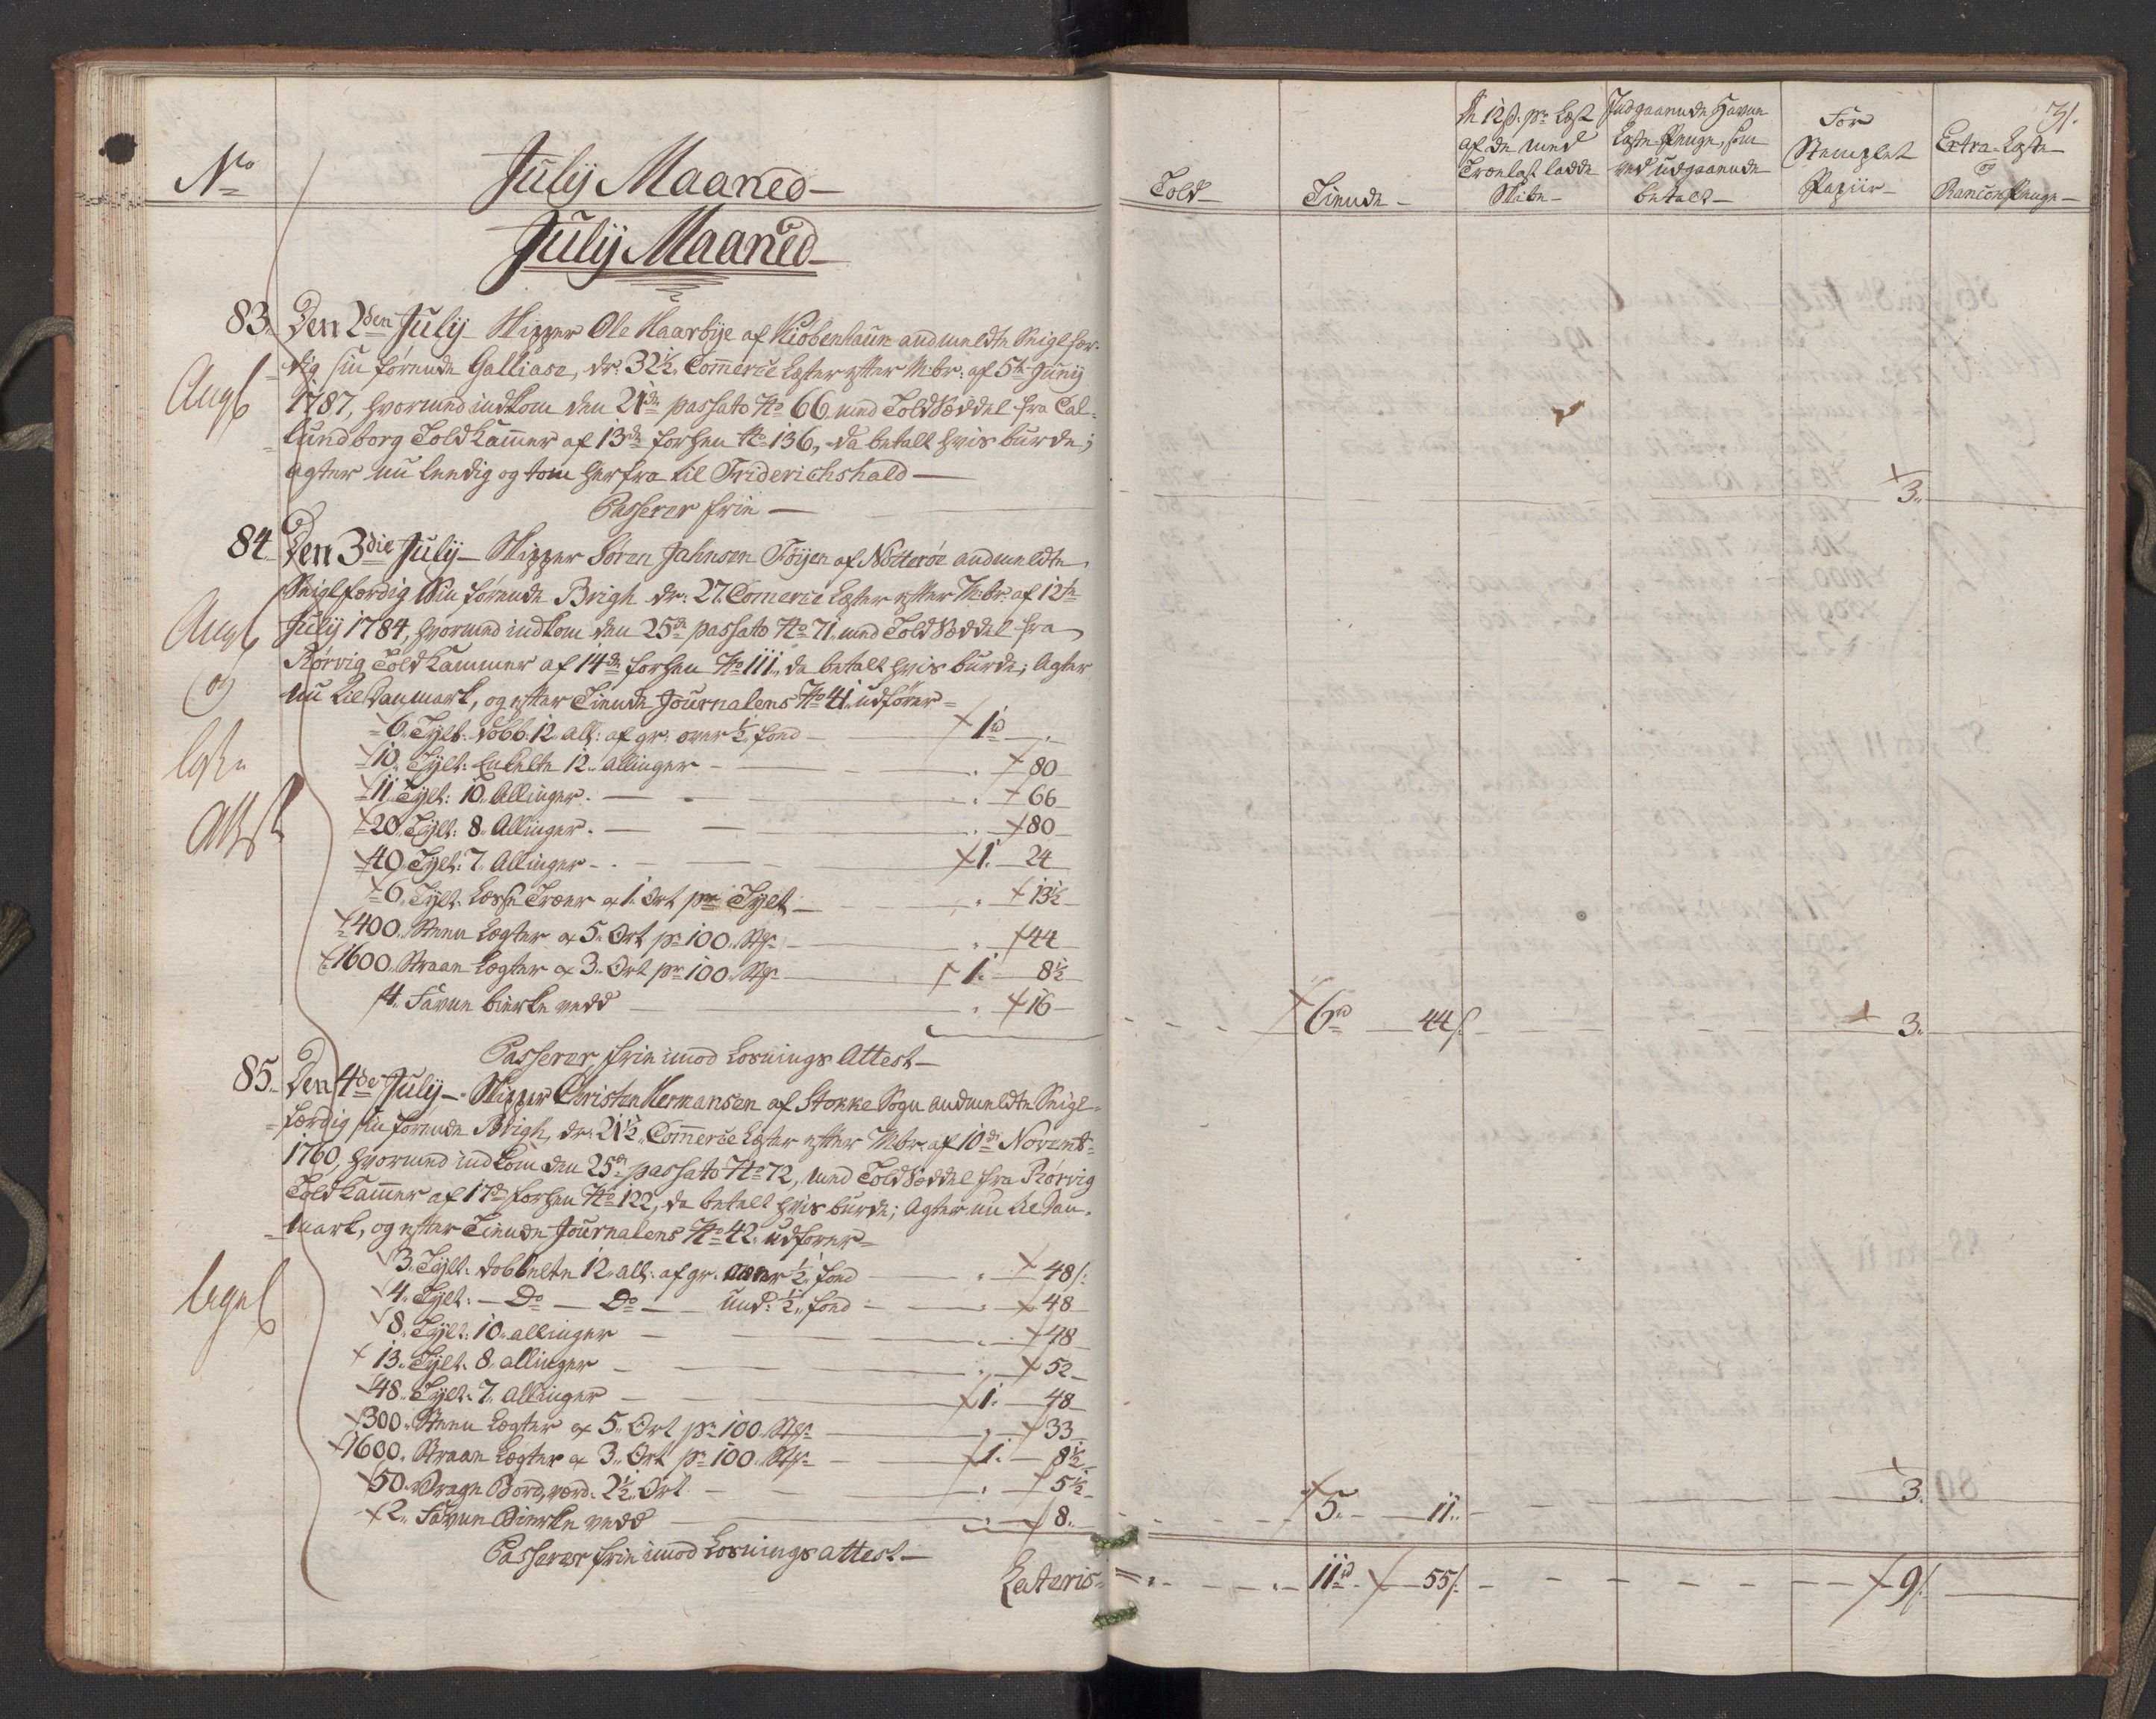 No
Julij Maaned
Julij Maaned
83. Den 2den Julij Skipper Ole Haarbye af Kiöbenhaun andmeldte Seiglfær-
dig sin førende Galliase, dr: 32½ Commerce Læster efter M:br: af 5te Junij
Angl 1787, hvormed indkom den 21de passato No 66. med Toldseddel fra Cal-
lundborg Toldkammer af 13de forhen No 136, da betalt hvis burde;
agter nu leedig og tom herfra til Friderichshald
Passerer frie
84. Den 3die Julij Skipper Søren Jahnsen Föyen af Nötteröe andmeldte
Seiglfærdig Sin førende Brigh dr: 27. Comerce Læster efter M:br: af 12te
Angl Julij 1784, hvormed indkom den 25de passato No 71. med Toldseddel fra
Rørvig Toldkammer af 14de forhen No 111. da betalt hvis burde; Agter
og nu til Danmark, og efter Tiende Journalens No 41. udfører
6. Tylt: dobb: 12. all: af gr: over ½ fond 1rd
10. Tylt: Enkelte 12. allinger 80
11. Tylt: 10. Allinger. 66
20. Tylt: 8. Allinger. 80
Attest
40. Tylt: 7. Allinger 1. 24
6. Tylt: Træer a 1. Ort pr Tylt 13½
400. Steen Lægter a 5. Ort pr 100. Stk 44
1600. Straae Lægter a 3. Ort pr 100. Stk 1. 8½
4. Favne birke vedd 16
Passerer frie imod Losnings Attest
85. Den 4de Julij Skipper Christen Hermansen af Stokke Sogn andmeldte Seigl-
færdig sin førende Brigh, dr: 21½ Commerce Læster efter M:br: af 10de Novembr:
1760, hvormed indkom den 25de passato No 72, med Toldseddel fra Rørvig
Toldkammer af 17de forhen No 122, da betalt hvis burde; Agter nu til Dan-
mark, og efter Tiende Journalens No 42. udfører
3. Tylt: dobbelte 12. all: af gr: over ½ fond 48ſ:
4. Tylt: Do Do und: ½ fond 48
8. Tylt: 10. allinger 48
13. Tylt: 8. allinger 52
48. Tylt: 7. Allinger 1. 48
300. Steen Lægter a 5. Ort pr 100. Stk 33
1600. Straae Lægter a 3. Ort pr 100. Stk 1. 8½
50. Vrage Bord, værd. 2½ Ort 5½
2. Favne Birke vedd 8.
Passerer frie imod Losnings attest
Lateris
71.
Told
Tiende
A 12ſ. pr Læst af de med Trælast ladde Skibe
Indgaaende Havne Læste Penge, som ved udgaaende betalt
For Stemplet Papiir
Extra Læste og Rancon Penge
3.
6rd 44ſ. 3.
5. 11. 3.
11rd 55ſ. 9ſ.